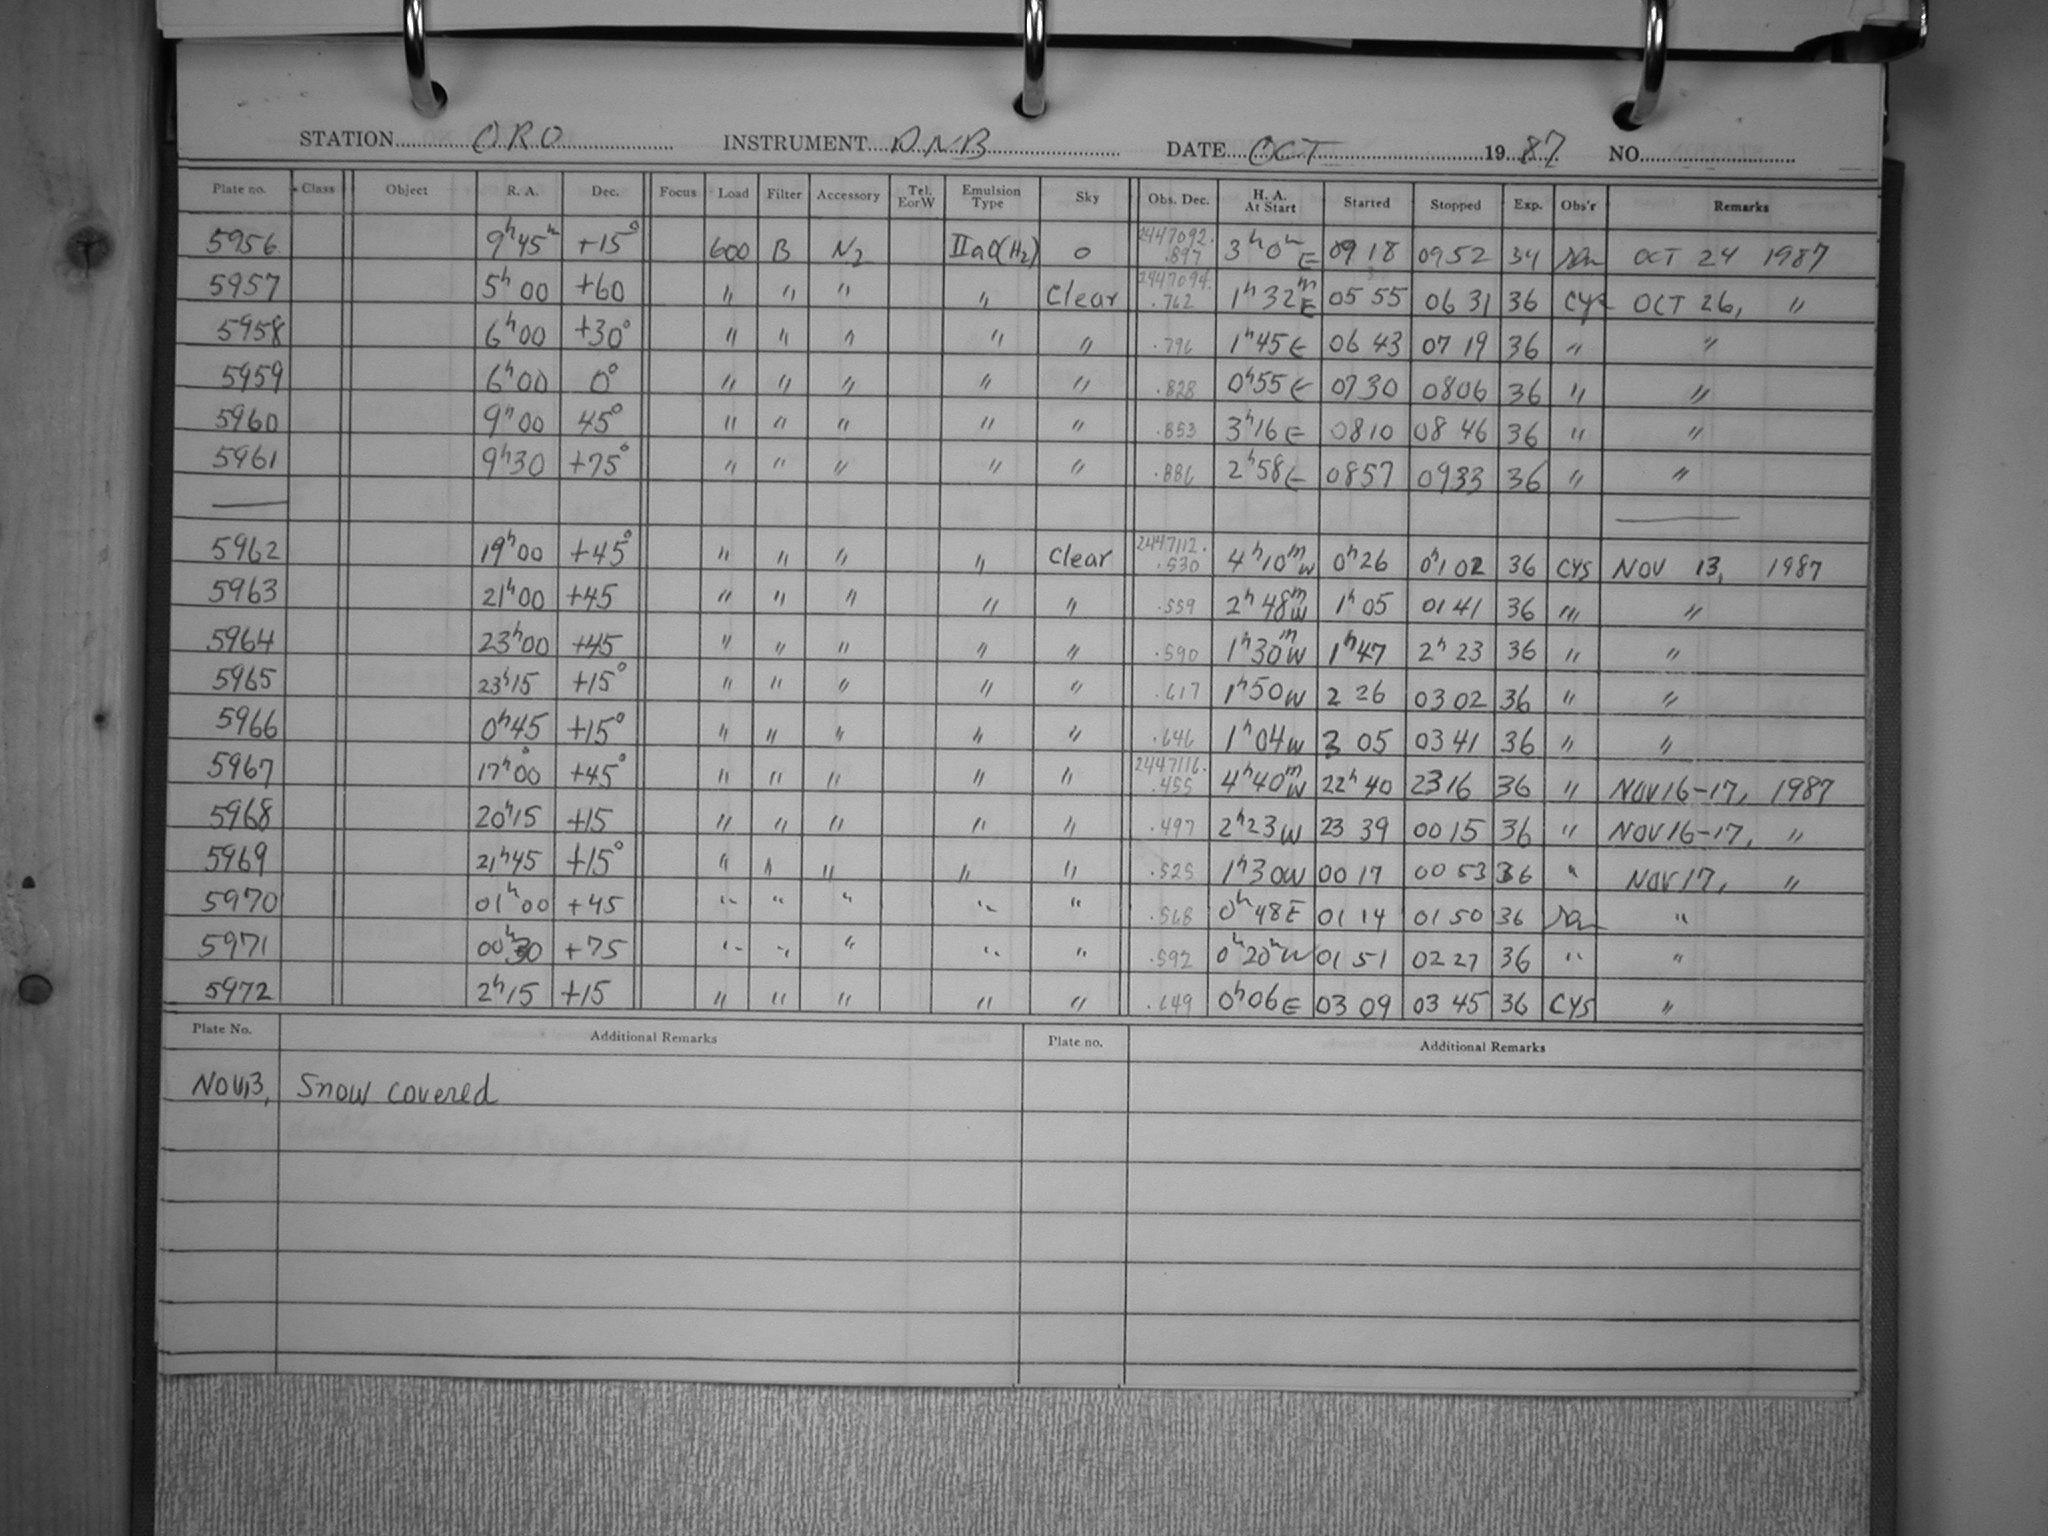 STATION ORO INSTRUMENT DNB DATE OCT 1987 NO.
Plate no. Class Object R. A. Dec. Focus Load Filter Accessory Tel. EorW Emulsion Type Sky Obs. Dec. H. A. At Start Started Stopped Exp. Obs'r Remarks
5956 9h45m +15° 600 B N2 IIaO(H2) 0 2447092.897 3h0m E 09 18 09 52 34 OCT 24 1987
5957 5h00 +60 " " " " Clear 2447094.762 1h32m E 05 55 06 31 36 CYS OCT 26, "
5958 6h00 +30° " " " " " .796 1h45 E 06 43 07 19 36 " "
5959 6h00 0° " " " " " .828 0h55 E 07 30 08 06 36 " "
5960 9h00 45° " " " " " .853 3h16 E 08 10 08 46 36 " "
5961 9h30 +75° " " " " " .886 2h58 E 08 57 09 33 36 " "
5962 19h00 +45° " " " " Clear 2447112.530 4h10m W 0h26 0h1 02 36 CYS NOV 13, 1987
5963 21h00 +45 " " " " " .559 2h48m W 1h05 01 41 36 " "
5964 23h00 +45 " " " " " .590 1h30m W 1h47 2h23 36 " "
5965 23h15 +15° " " " " " .617 1h50 W 2 26 03 02 36 " "
5966 0h45 +15° " " " " " .646 1h04 W 3 05 03 41 36 " "
5967 17h00 +45° " " " " " 2447116.455 4h40m W 22h40 23 16 36 " NOV 16-17, 1987
5968 20h15 +15 " " " " " .497 2h23 W 23 39 00 15 36 " NOV 16-17, "
5969 21h45 +15° " " " " " .525 1h30 W 00 17 00 53 36 " NOV 17, "
5970 01h00 +45 " " " " " .568 0h48 E 01 14 01 50 36 "
5971 00h30 +75 " " " " " .592 0h20m W 01 51 02 27 36 " "
5972 2h15 +15 " " " " " .649 0h06 E 03 09 03 45 36 CYS "
Plate No. Additional Remarks Plate no. Additional Remarks
NOV13, Snow covered